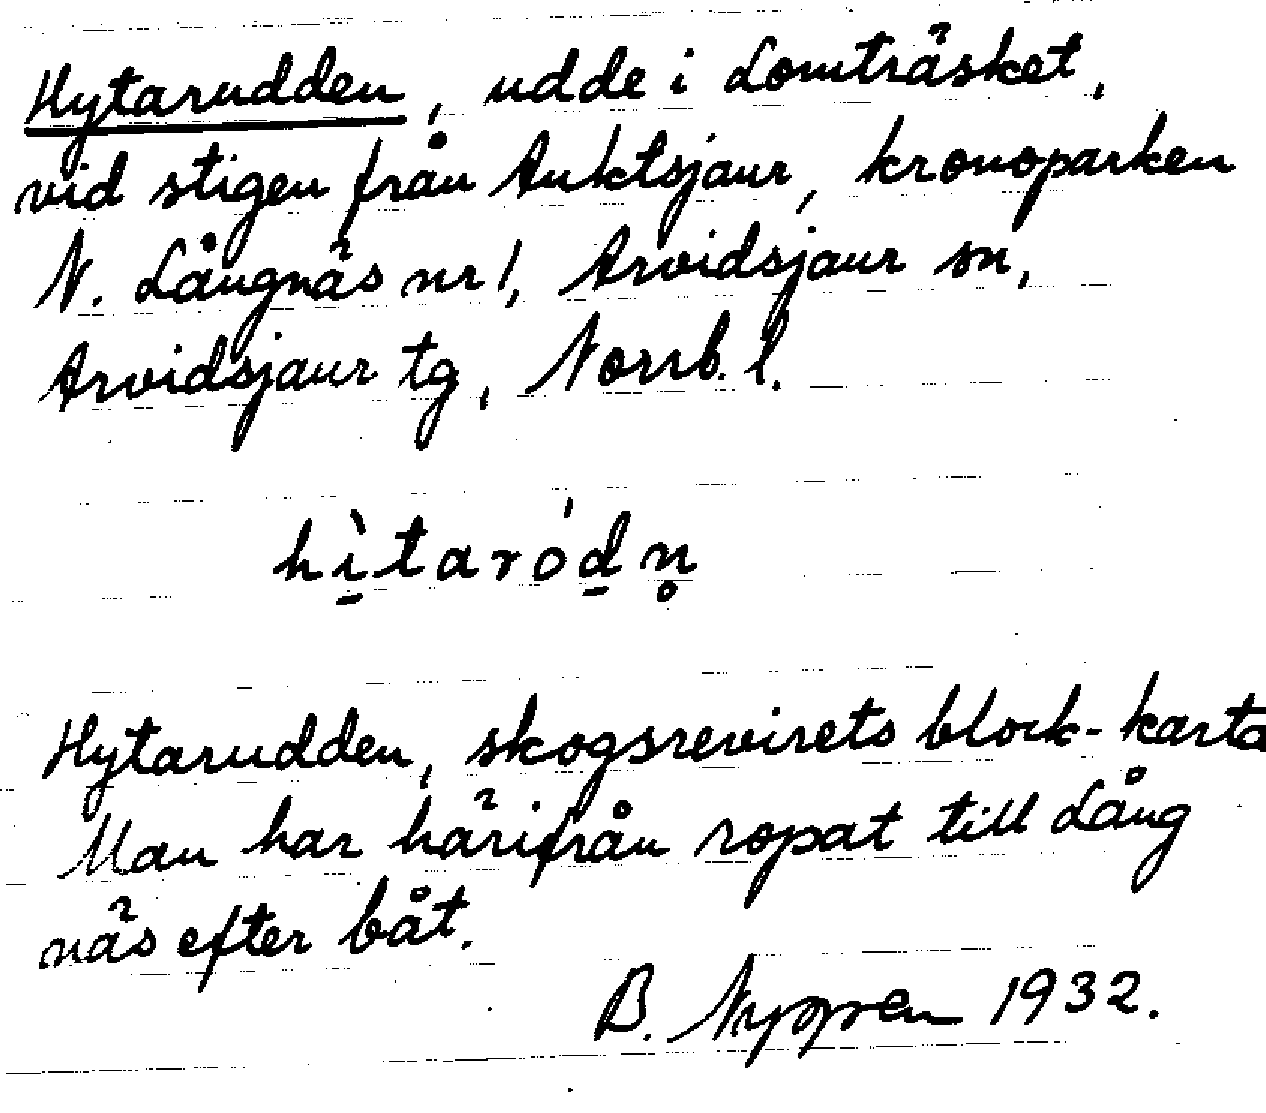 Hytarudden, udde i Lomträsket,
vid stigen från Auktsjaur, kronoparken
N. Långnäs nr 1, Arvidsjaur sn,
Arvidsjaur tg, Norrb. l.
hì̱taróḏn̥
Hytarudden, skogsrevirets block-karta
Man har härifrån ropat till Lång
näs efter båt.
B. Nyppen 1932.